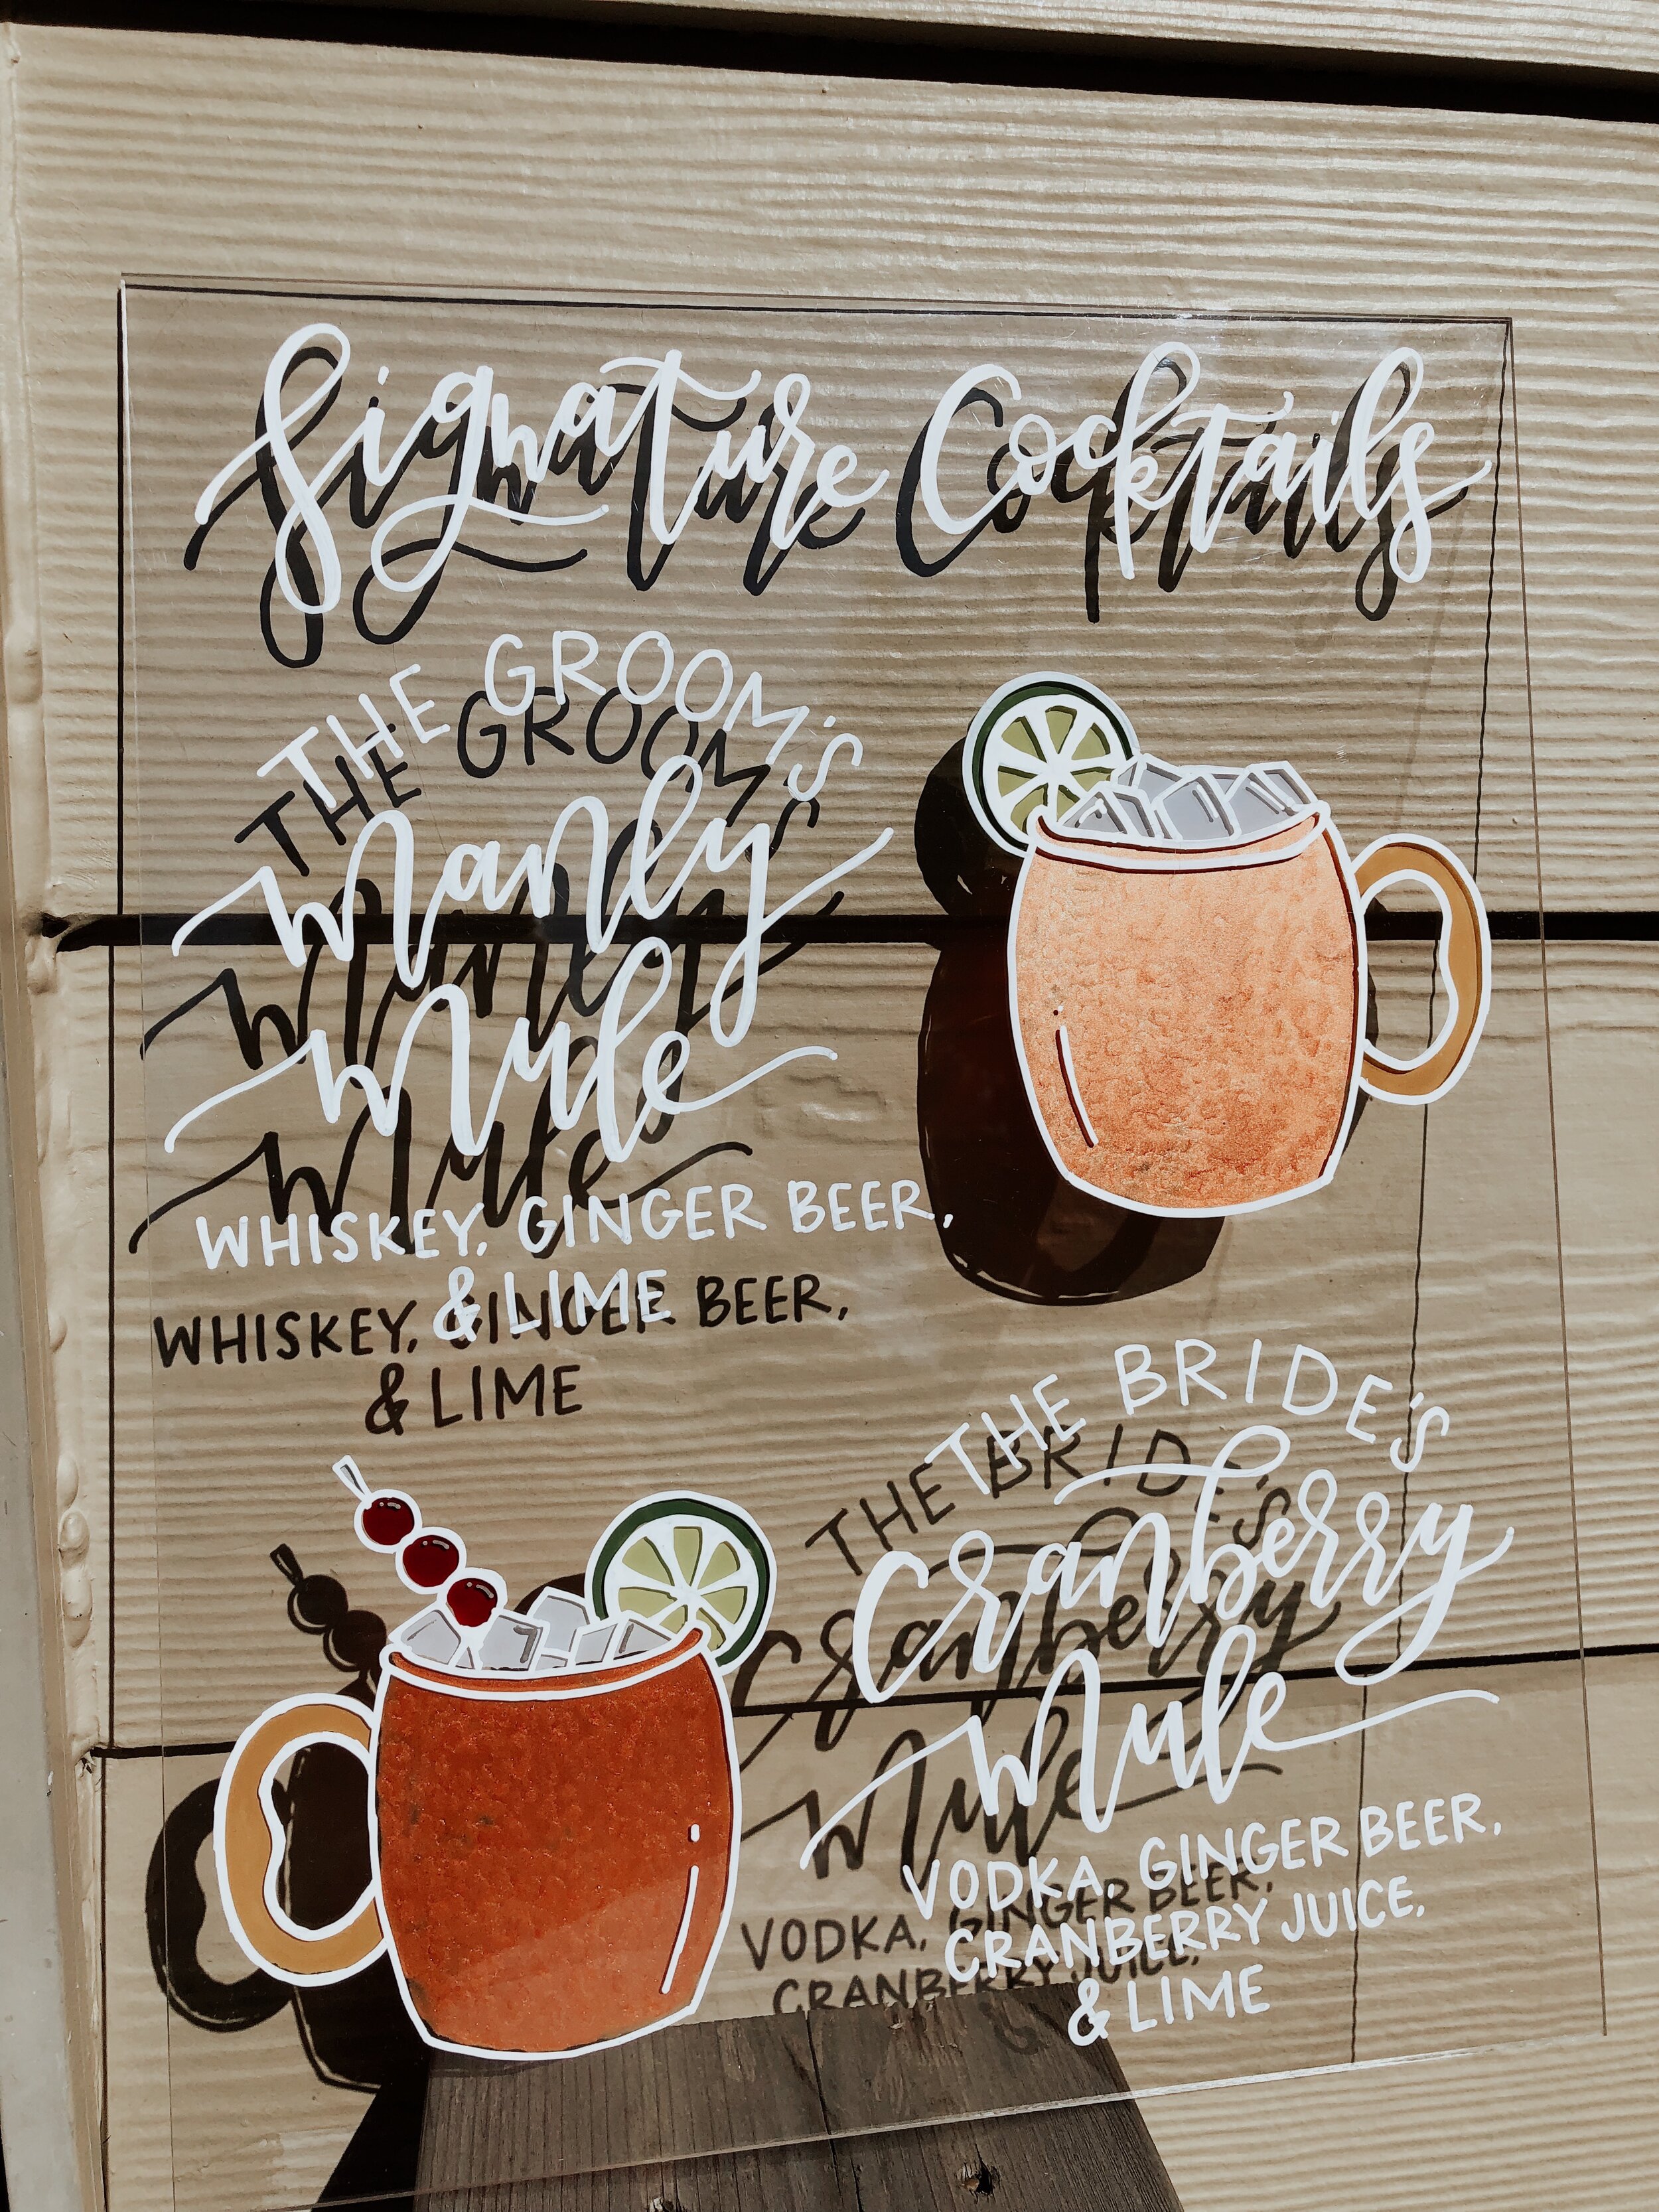 Signature Cocktails
THE GROOM'S
Manly
Mule
WHISKEY, GINGER BEER,
& LIME
THE BRIDE'S
Cranberry
Mule
VODKA, GINGER BEER,
CRANBERRY JUICE,
& LIME